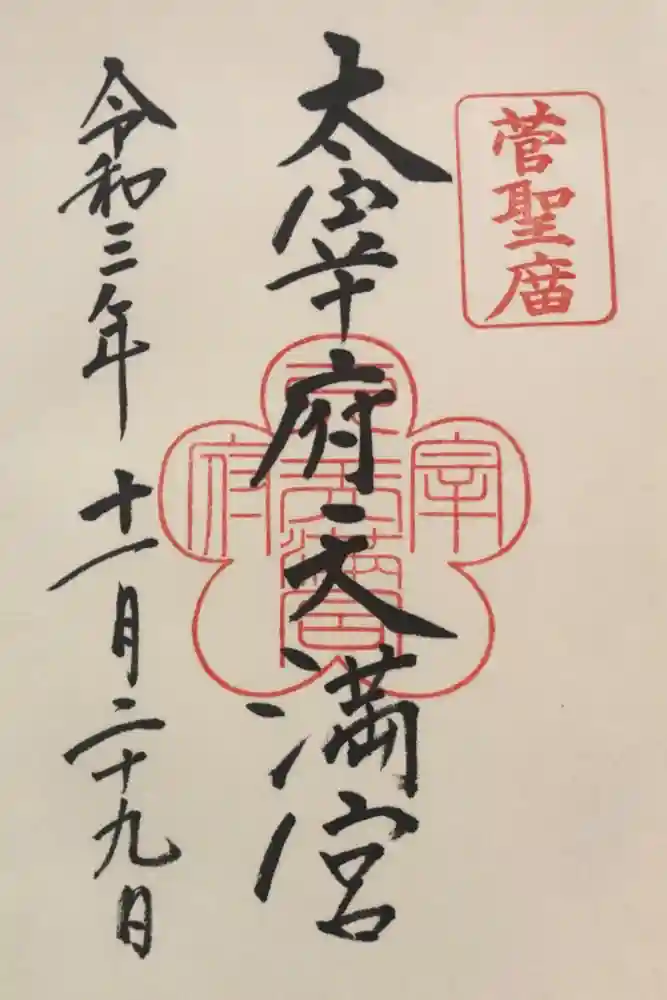 菅聖廟
太宰府天満宮
令和三年十一月二十九日